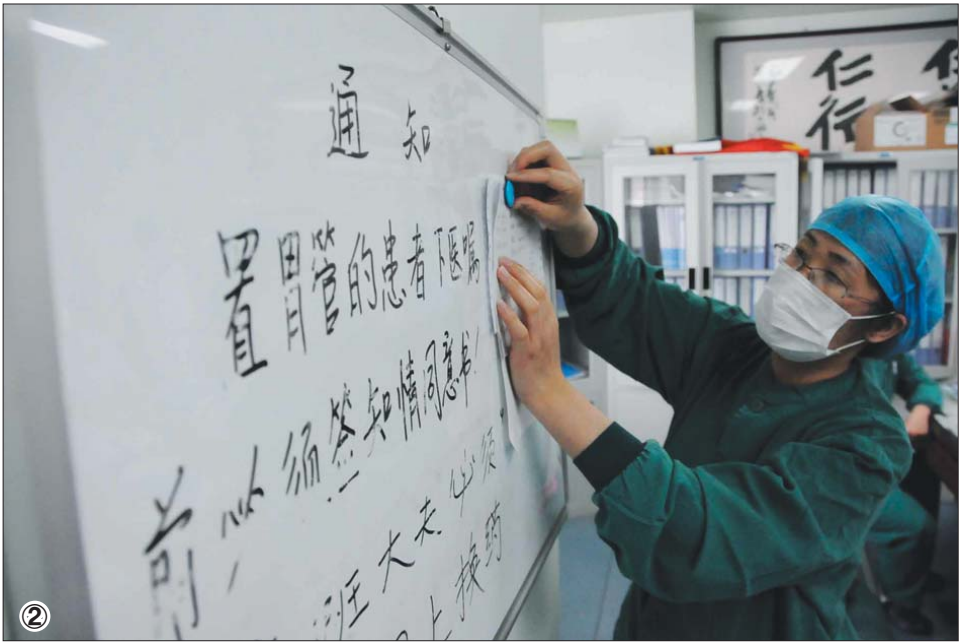 通知
置胃管的患者下医嘱
前必须签知情同意书！
班大夫必须
上换药
仁
行
②